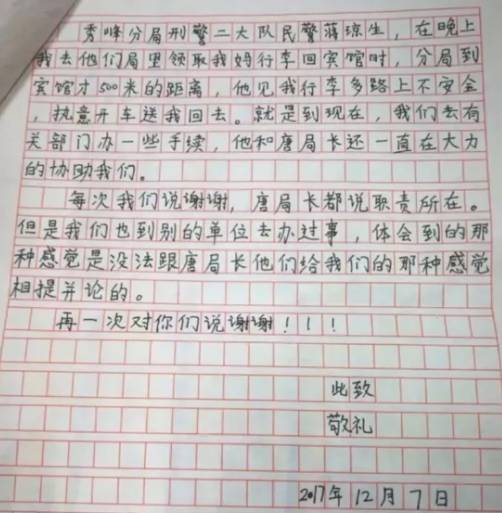 秀峰分局刑警二大队民警蒋琼生，在晚上
我去他们局里领取我妈行李回宾馆时，分局到
宾馆才500米的距离，他见我行李多路上不安全
，执意开车送我回去。就是到现在，我们去有
关部门办一些手续，他和唐局长还一直在大力
的协助我们。
每次我们说谢谢，唐局长都说职责所在。
但是我们也到别的单位去办过事，体会到的那
种感觉是没法跟唐局长他们给我们的那种感觉
相提并论的。
再一次对你们说谢谢！！！
此致
敬礼
2017年12月7日